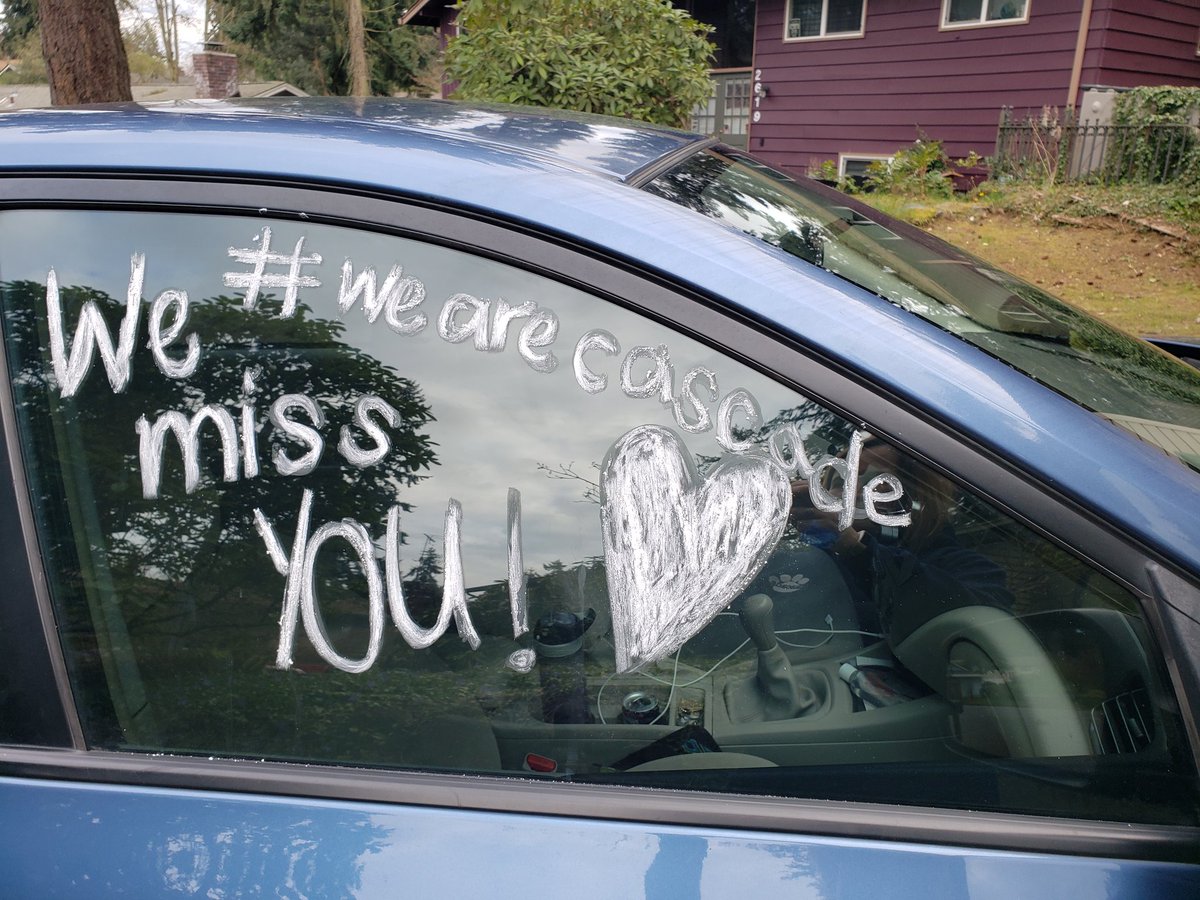 We
miss
YOU!
#wearecascade
2619